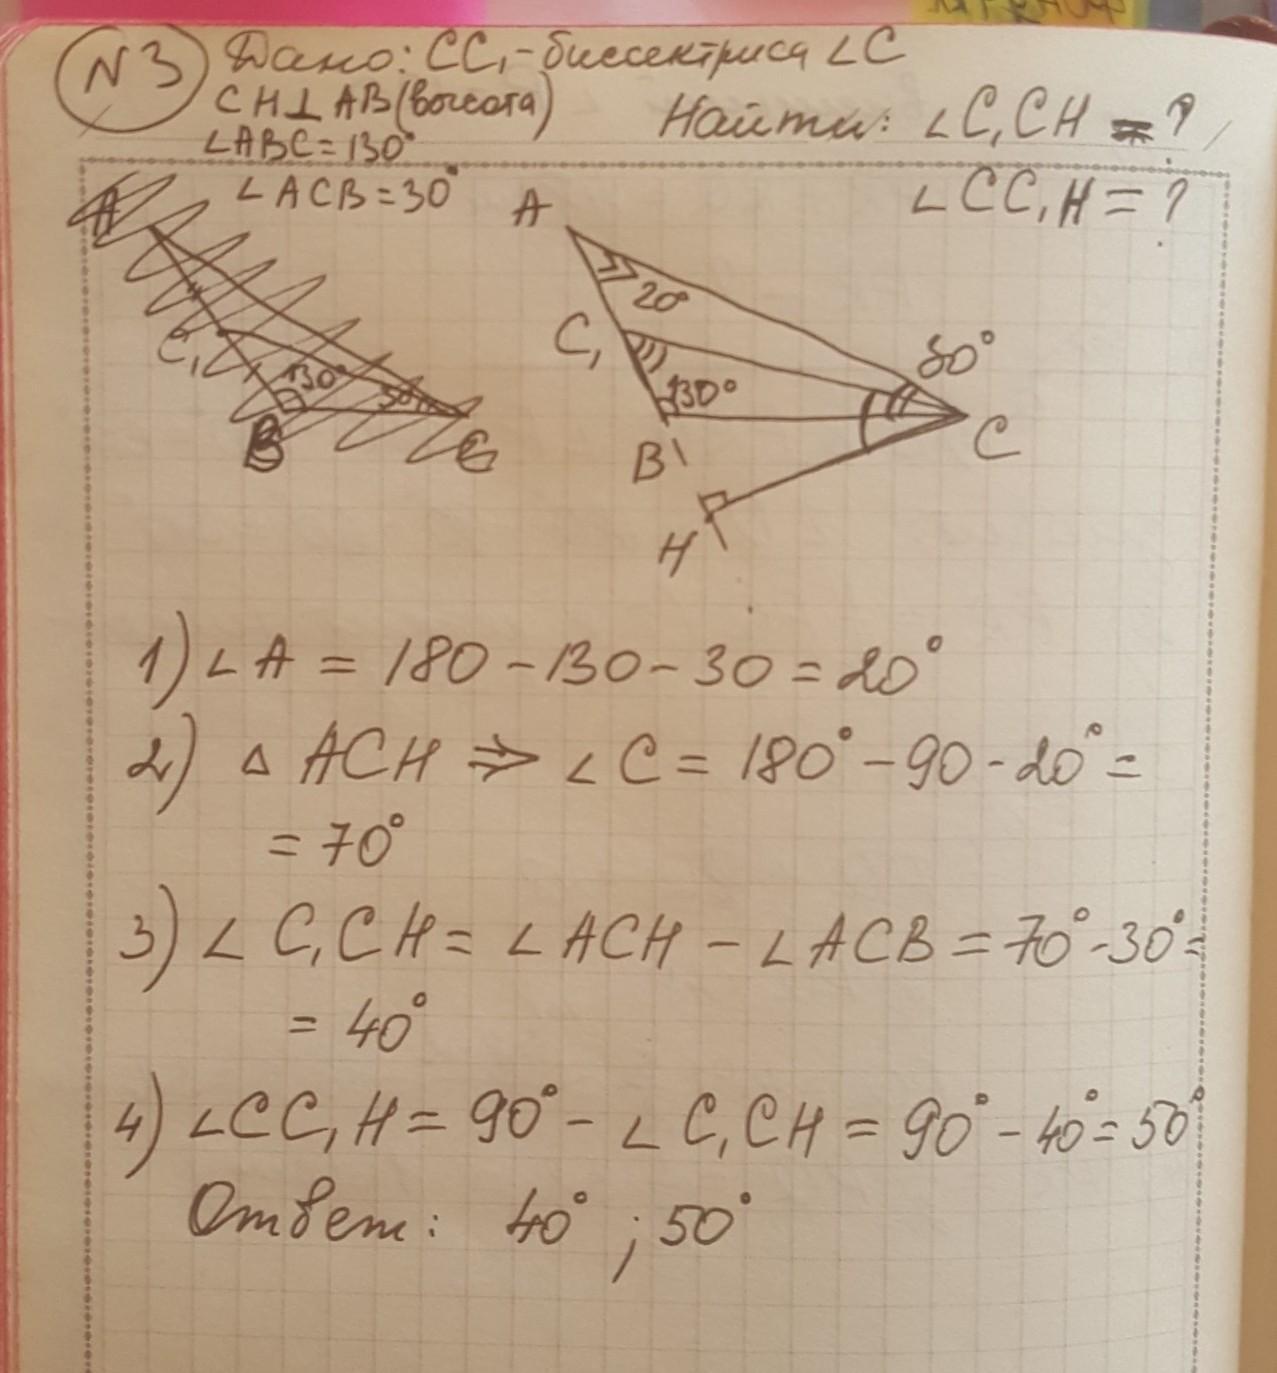 N3 Дано: CC₁ - биссектриса ∠C
CH⊥AB (высота)
Найти: ∠C₁CH = ?
∠ABC = 130°
∠ACB = 30°
∠CC₁H = ?
A
C₁
130°
B
C
A
20°
C₁
130°
30°
B
C
H
1) ∠A = 180 - 130 - 30 = 20°
2) △ ACH ⇒ ∠C = 180° - 90 - 20° =
= 70°
3) ∠C₁CH = ∠ACH - ∠ACB = 70° - 30° =
= 40°
4) ∠CC₁H = 90° - ∠C₁CH = 90° - 40° = 50°
Ответ: 40° ; 50°